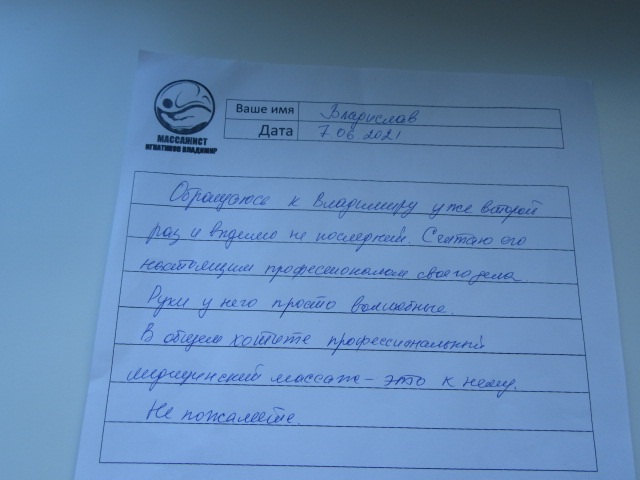 МАССАЖИСТ
ИГНАТИКОВ ВЛАДИМИР
Ваше имя Владислав
Дата 7.06.2021
Обращаюсь к Владимиру уже второй
раз и видемо не последний. Считаю его
настоящим профессионалом своего дела.
Руки у него просто волшебные.
В общем хотите профессиональный
медицинский массаж – это к нему.
Не пожалеете.